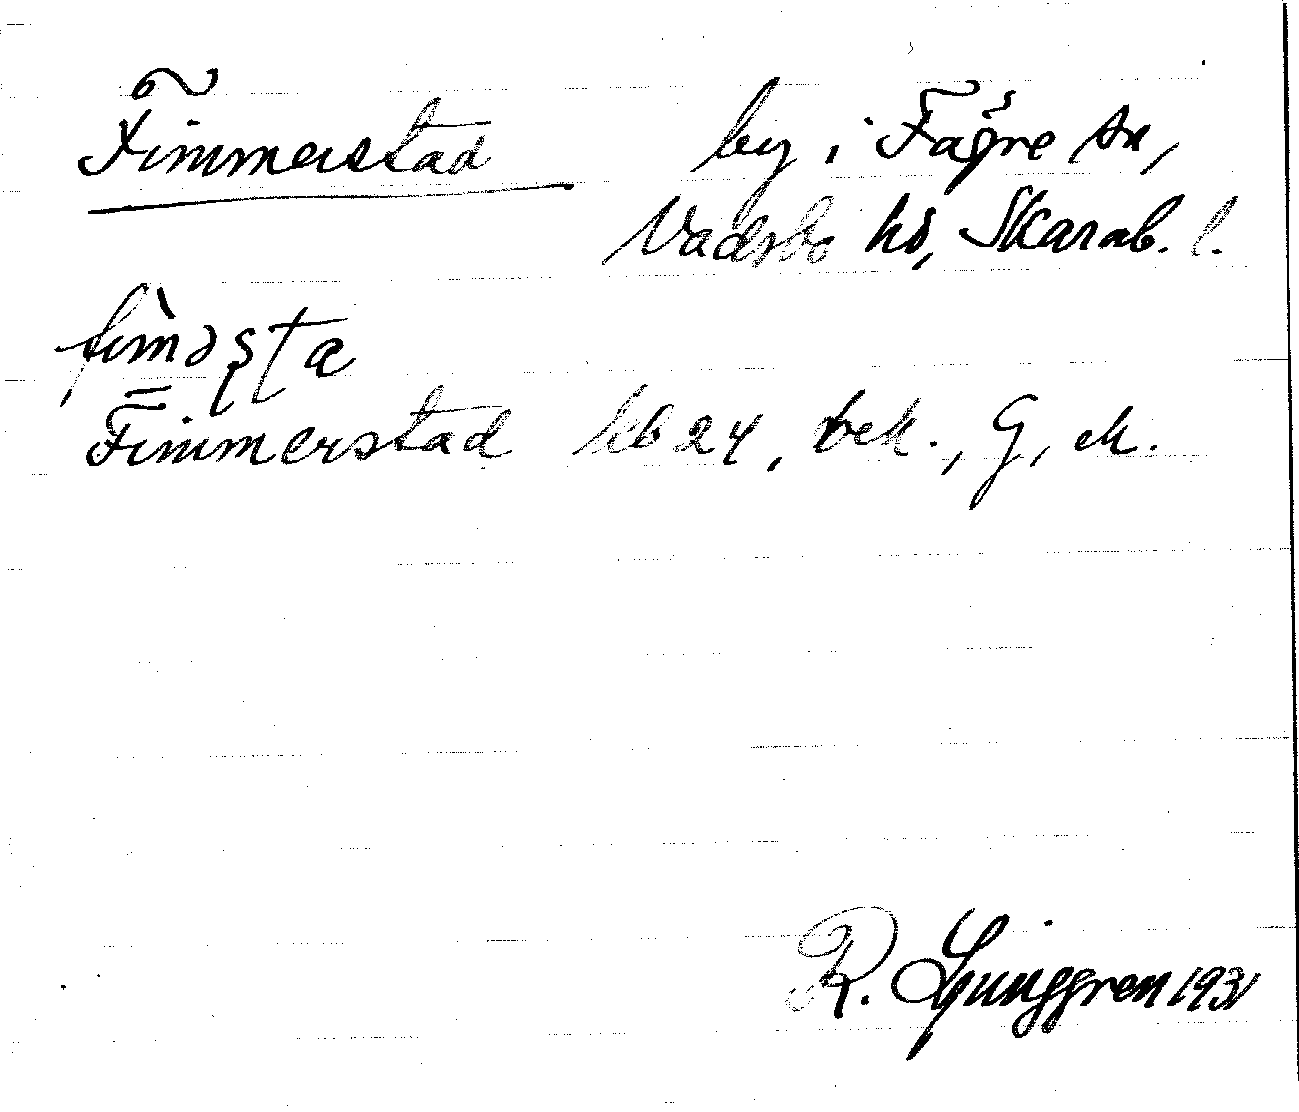 Fimmerstad by i Fägre sn,
Vadsbo hd, Skarab. l.
fìməsta
Fimmerstad kb 24, bek., G, ek.
R. Ljunggren 1931